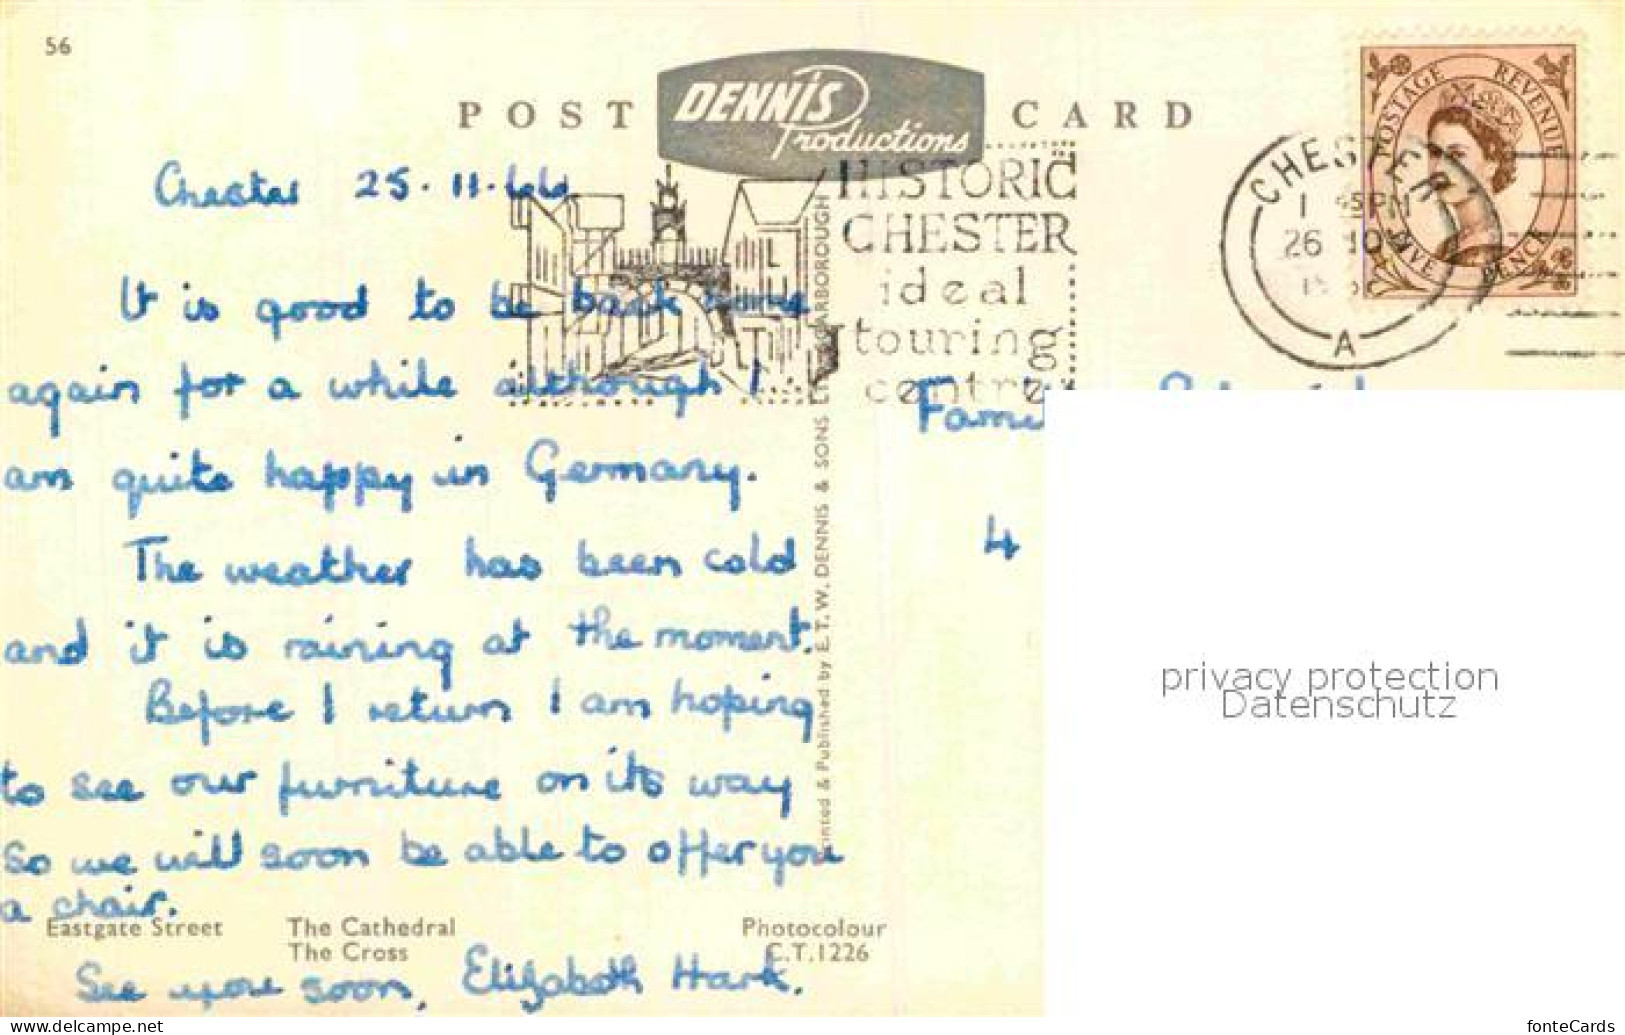 56
POST DENNIS Productions CARD
Chester 25.11.66
HISTORIC
CHESTER
ideal
touring
centre
POSTAGE REVENUE
FIVE PENCE
CHESTER
26
A
It is good to be back home
again for a while although I
am quite happy in Germany.
The weather has been cold
and it is raining at the moment.
Before I return I am hoping
to see our furniture on its way
so we will soon be able to offer you
a chair.
See you soon, Elizabeth Hark.
Eastgate Street
The Cathedral
The Cross
Photocolour
C.T.1226
Printed & Published by E.T.W. DENNIS & SONS LTD SCARBOROUGH
4
privacy protection
Datenschutz
www.delcampe.net
fonteCards